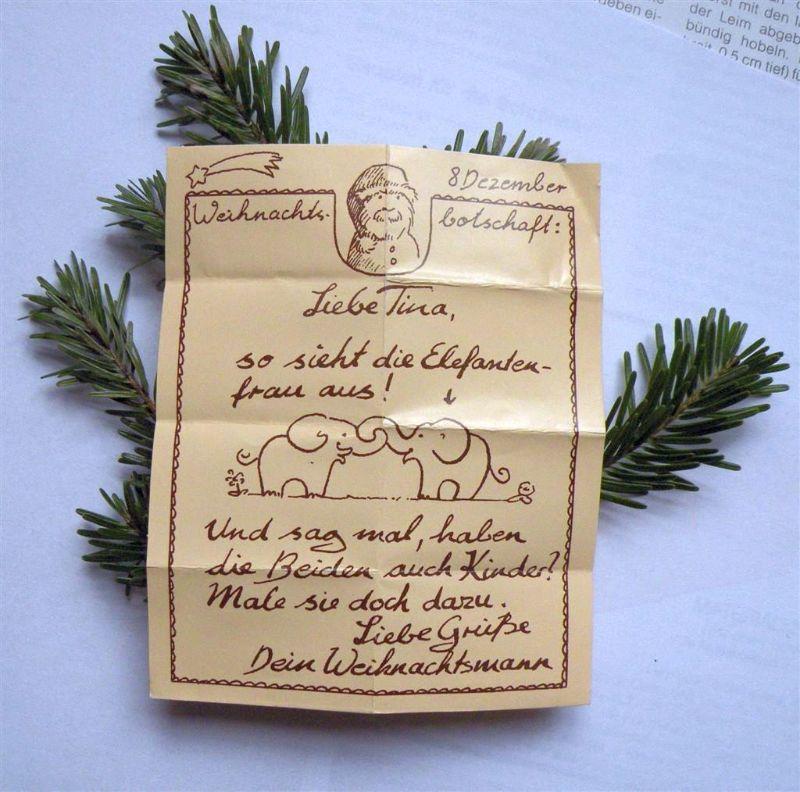 8 Dezember
Weihnachts-
botschaft:
Liebe Tina,
so sieht die Elefanten-
frau aus!
Und sag mal, haben
die Beiden auch Kinder?
Male sie doch dazu.
Liebe Grüße
Dein Weihnachtsmann
mit den
der Leim
bündig hobeln,
0,5 cm tief)